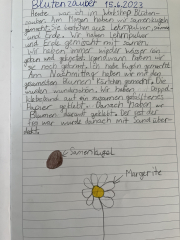 Blütenzauber 15.6.2023
Heute war ich im Workshop Blüten-
zauber. Am Morgen haben wir Samenkugeln
gemacht. Sie bestehen aus Lehmpulver, Samen
und Erde. Wir haben Lehmpulver
und Erde gemischt mit Samen.
Wir haben immer wieder Wasser
geben und geknetet. Irgendwann haben wir
sie noch geformt. Ich habe Kugeln gemacht.
Am Nachmittag haben wir mit den
gesammelten Blumen Kärtchen gemacht. Sie
wurden wunderschön. Wir haben Doppel-
klebeband auf ein zusammen gefaltetes
Papier geklebt. Danach haben wir
Blumen darauf geklebt. Der rest der
wurde danach mit Sand über-
deckt.
Samenkugel
Margerite